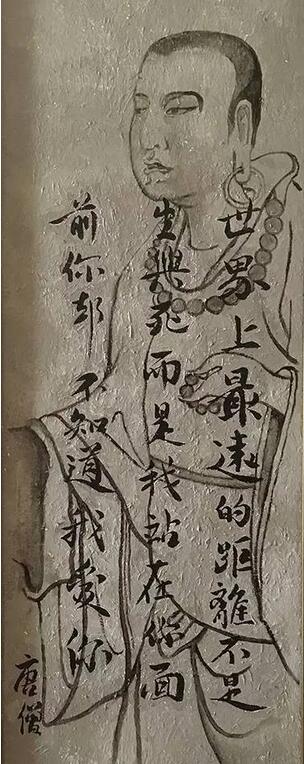 世界上最遠的距離不是
生與死而是我站在你面
前你却不知道我愛你
唐僧